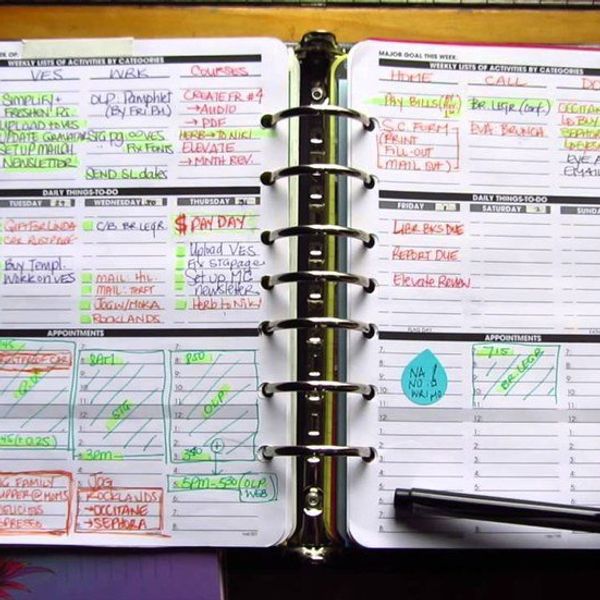 WEEKLY LISTS OF ACTIVITIES BY CATEGORIES
VES
WRK
COURSES
SIMPLIFY +
FRESHEN
OLP: Pamphlet
(BY FRI PM)
CREATE FR #4
→AUDIO
→PDF
UPLOAD to MIS
SETUP MAILCH
NEWSLETTER
SIG pg ∞ VES
Fix FONTS
SEND SL dates
HERB TO NIKI
ELEVATE
→MNTH REV.
DAILY THINGS-TO-DO
TUESDAY
WEDNESDAY
THURSDAY
GIFT FOR LINDA
Buy Templ.
WORK ON VES
C/B BR LEGR.
MAIL: HL
MAIL: THFT
JOG W/MOKA
ROCKLANDS
$ PAY DAY
Upload VES
Fix SIG page
Set up MC
newsletter
Herb to Niki
APPOINTMENTS
8AM
SIG
3PM
JOG
ROCKLANDS
→OCCITANE
→SEPHORA
OLP
5PM-530
(OLP
WEB)
FAMILY
SUPPER @ MOMS
MAJOR GOAL THIS WEEK:
WEEKLY LISTS OF ACTIVITIES BY CATEGORIES
HOME
CALL
PAY BILLS
S.C. FORM
(PRINT
FILL-OUT
MAIL OUT)
BR. LEGR. (conf.)
EVA BRUNCH
EMAIL
DAILY THINGS-TO-DO
FRIDAY
SATURDAY
SUNDAY
LIBR BKS DUE
REPORT DUE
Elevate Review
FLAG DAY
APPOINTMENTS
NA
NO!
WRI MO
7:15
BR. LEGR